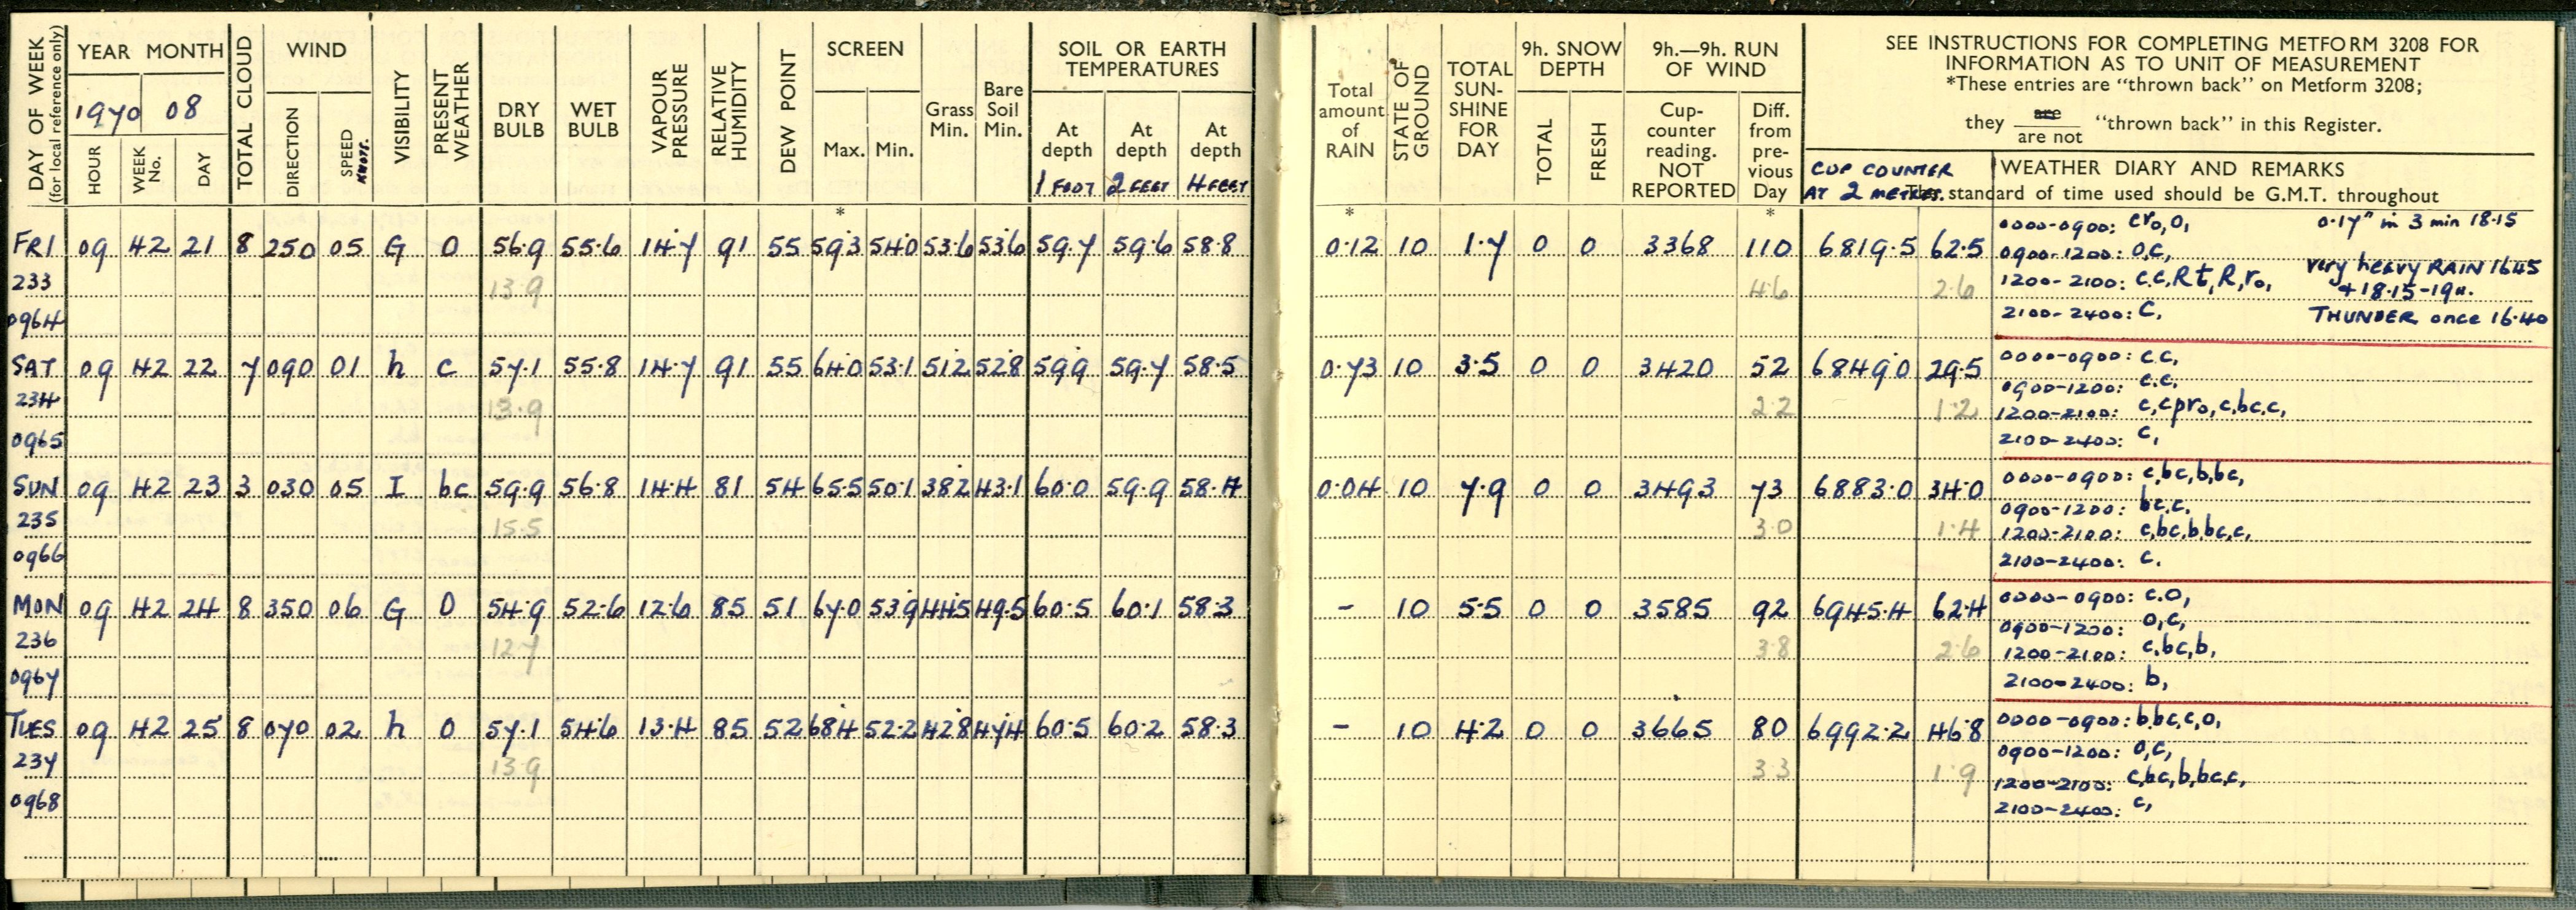 DAY OF WEEK
(for local reference only)
YEAR MONTH
1970 08
HOUR
WEEK No.
DAY
TOTAL CLOUD
WIND
DIRECTION
SPEED KNOTS.
VISIBILITY
PRESENT WEATHER
DRY BULB
WET BULB
VAPOUR PRESSURE
RELATIVE HUMIDITY
DEW POINT
SCREEN
Max. Min.
*
Grass Min.
Bare Soil Min.
SOIL OR EARTH TEMPERATURES
At depth 1 FOOT
At depth 2 FEET
At depth 4 FEET
Total amount of RAIN
*
STATE OF GROUND
TOTAL SUN-SHINE FOR DAY
9h. SNOW DEPTH
TOTAL
FRESH
9h.—9h. RUN OF WIND
Cup-counter reading. NOT REPORTED
Diff. from pre-vious Day
*
SEE INSTRUCTIONS FOR COMPLETING METFORM 3208 FOR
INFORMATION AS TO UNIT OF MEASUREMENT
*These entries are "thrown back" on Metform 3208;
they are / are not "thrown back" in this Register.
CUP COUNTER
AT 2 METRES.
WEATHER DIARY AND REMARKS
The standard of time used should be G.M.T. throughout
FRI 09 42 21 8 250 05 G O 56.9 55.6 14.7 91 55 59.3 54.0 53.6 53.6 59.7 59.6 58.8 0.12 10 1.7 0 0 3368 110 6819.5 62.5
233 13.9 4.6 2.6
0964
0000-0900: cro,o,
0900-1200: o,c,
1200-2100: c,c,Rt,R,ro,
2100-2400: c,
0.17" in 3 min 18.15
very heavy RAIN 1645
+ 18.15-19H.
THUNDER once 16.40
SAT 09 42 22 7 090 01 h c 57.1 55.8 14.7 91 55 64.0 53.1 51.2 52.8 59.9 59.7 58.5 0.73 10 3.5 0 0 3420 52 6849.0 29.5
234 13.9 2.2 1.2
0965
0000-0900: c.c,
0900-1200: c.c,
1200-2100: c,cpro,c,bc,c,
2100-2400: c,
SUN 09 42 23 3 030 05 I bc 59.9 56.8 14.4 81 54 65.5 50.1 38.2 43.1 60.0 59.9 58.4 0.04 10 7.9 0 0 3493 73 6883.0 34.0
235 15.5 3.0 1.4
0966
0000-0900: c,bc,b,bc,
0900-1200: bc,c,
1200-2100: c,bc,b,bc,c,
2100-2400: c.
MON 09 42 24 8 350 06 G O 54.9 52.6 12.6 85 51 67.0 53.9 44.5 49.5 60.5 60.1 58.3 - 10 5.5 0 0 3585 92 6945.4 62.4
236 12.7 3.8 2.6
0967
0000-0900: c.o,
0900-1200: o,c,
1200-2100: c,bc,b,
2100-2400: b,
TUES 09 42 25 8 070 02 h O 57.1 54.6 13.4 85 52 68.4 52.2 42.8 47.4 60.5 60.2 58.3 - 10 4.2 0 0 3665 80 6992.2 46.8
237 13.9 3.3 1.9
0968
0000-0900: b,bc,c,o,
0900-1200: o,c,
1200-2100: c,bc,b,bc,c,
2100-2400: c,